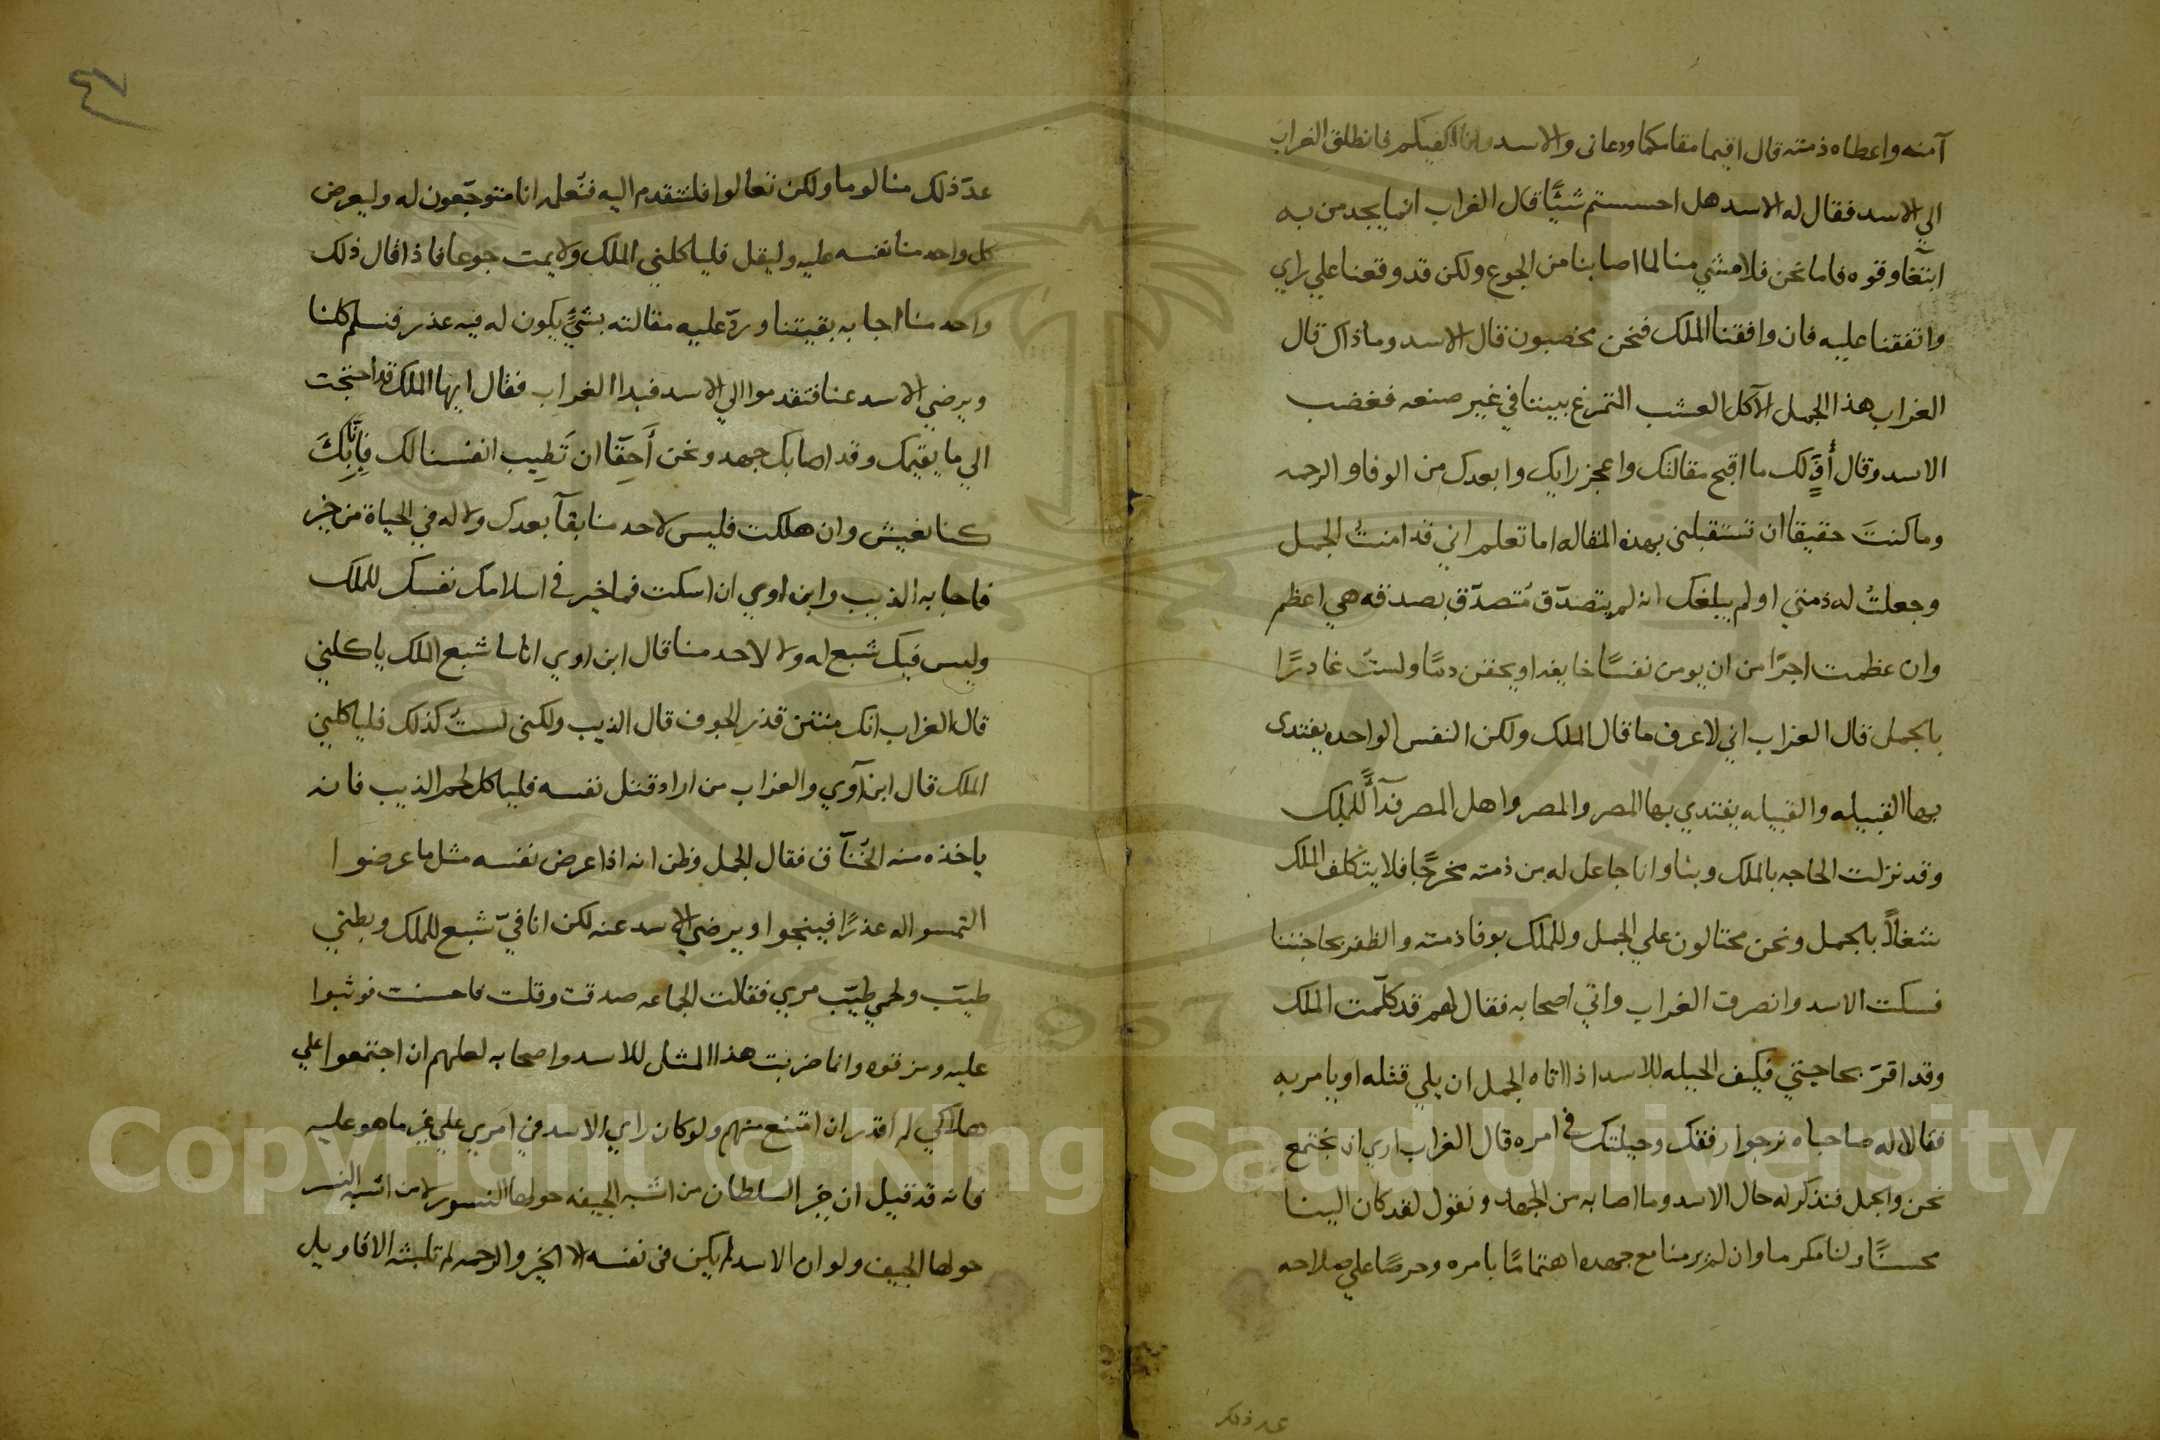 آمنه واعطاه ذمته قال اقيما مقامكما ودعاني والاسد وانا اكفيكم فانطلق الغراب
الي الاسد فقال له الاسد هل احسستم شيًّا قال الغراب انما يجد من به
ابتغا وقوه فاما نحن فلا مشي منا لما اصابنا من الجوع ولكن قد وقعنا علي راي
واتفقنا عليه فان وافقنا الملك فنحن مخصبون قال الاسد وما ذاك قال
الغراب هذا الجمل الآكل العشب التمرغ بيننا في غير صنعه فغضب
الاسد وقال أُفٍّ لك ما اقبح مقالتك واعجز رايك وابعدك من الوفا والرحمه
وما كنتَ حقيقا ان تستقبلني بهذه المقاله اما تعلم اني قد امنتُ الجمل
وجعلتُ له ذمتي اولم يبلغك انه لم يتصدّق مُتصدّق بصدقه هي اعظم
وان عظمت اجرًا من ان يومن نفسًا خايفه او يحقن دمًا ولستُ غادرًا
بالجمل قال الغراب اني لاعرف ما قال الملك ولكن النفس الواحده يفتدي
بها القبيله والقبيله يفتدي بها المصر والمصر واهل المصر فدآً للملك
وقد نزلت الحاجه بالملك وبنا وانا جاعل له من ذمته مخرجًا فلا يتكلف الملك
شغلاً بالجمل ونحن محتالون علي الجمل وللملك بوفا ذمته والظفر بحاجتنا
فسكت الاسد وانصرف الغراب واتي اصحابه فقال لهم قد كلّمت الملك
وقد اقرّ بحاجتي فكيف الحيله للاسد اذا اتاه الجمل ان يلي قتله او يامر به
فقالا له صاحباه نرجوا رفقك وحيلتك في امره قال الغراب اري ان نجتمع
نحن والجمل فنذكر له حال الاسد وما اصابه من الجهد ونقول لقد كان الينا
محسنًا ولنا مكرما وان لم ير منا مع جهده اهتمامًا بامره وحرصًا علي صلاحه
عد ذلك
٤٦
عدّ ذلك منا لوما ولكن تعالوا فلنتقدم اليه فنُعلمه انا متوجّعون له وليعرض
كل واحد منا نفسه عليه وليقل فلياكلني الملك ولا يمت جوعا فاذا قال ذلك
واحد منا اجابه بقيتنا وردّ عليه مقالته بشيٍّ يكون له فيه عذر فنسلم كلنا
ويرضي الاسد عنا فتقدموا الي الاسد فبدا الغراب فقال ايها الملك قد احتجت
الي ما يقيمك وقد اصابك جهد ونحن أَحِقّا ان تَطِيب انفسنا لك فانّا بِكَ
كنا نعيش وان هلكت فليس لاحد منا بقآ بعدك ولا له في الحياة من خير
فاجابه الذيب وابن اوي ان اسكت فما خير في اسلامك نفسك للملك
وليس فيك شبع له ولا لاحد منا قال ابن اوي انا اشبع الملك ياكلني
قال الغراب انك منتن قذر الجوف قال الذيب ولكني لستُ كذلك فلياكلني
الملك قال ابن آوي والغراب من اراد قتل نفسه فلياكل لحم الذيب فانه
ياخذه منه الخُنّاق فقال الجمل وظن انه اذا عرض نفسه مثل ما عرضوا
التمسوا له عذرًا فينجوا ويرضي الاسد عنه لكن انا فيّ شبع للملك وبطني
طيّب ولحمي طيّب مري فقالت الجماعه صدقت وقلت فاحسنت فوثبوا
عليه ومزقوه وانما ضربت هذا المثل للاسد واصحابه لعلمهم ان اجتمعوا علي
هلاكي لم اقدر ان امتنع منهم ولو كان راي الاسد في امري علي غير ما هو عليه
فانه قد قيل ان خير السلطان من اشبه الجيفه حولها النسور لا من اشبه النسر
حولها الجيف ولو ان الاسد لم يكن في نفسه الا الخير والرحمه لم تلبثه الاقاويل